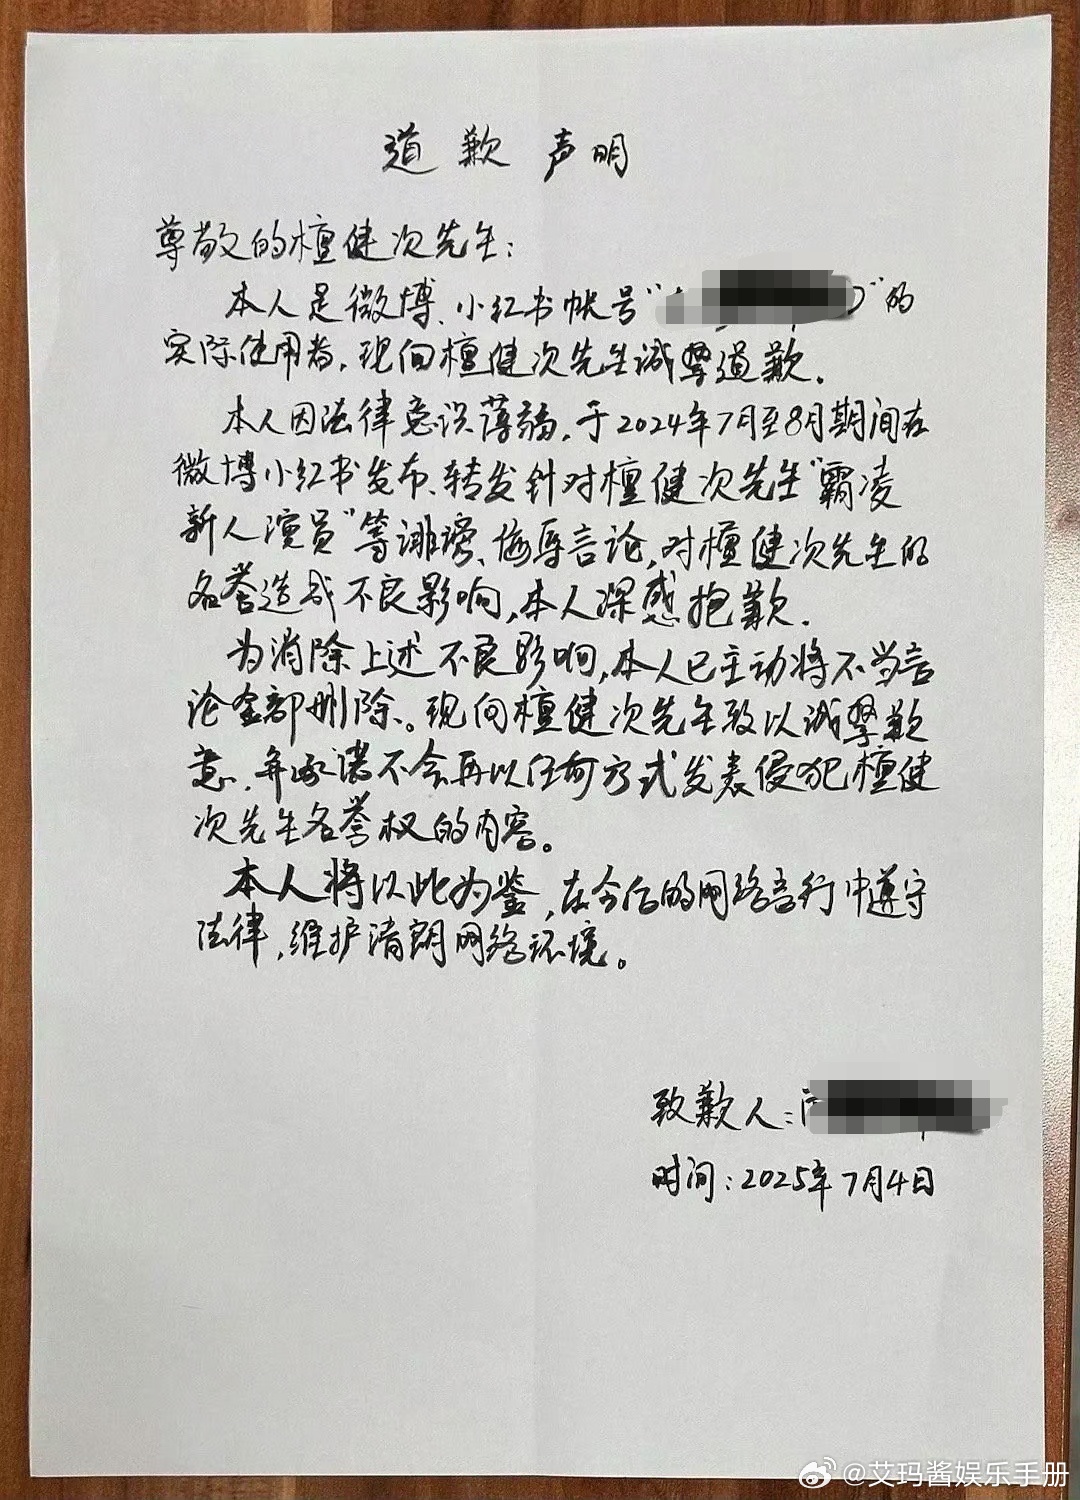 道歉声明
尊敬的檀健次先生：
本人是微博、小红书帐号“ ”的
实际使用者，现向檀健次先生诚挚道歉。
本人因法律意识薄弱，于2024年7月至8月期间在
微博小红书发布、转发针对檀健次先生“霸凌
新人演员”等诽谤、侮辱言论，对檀健次先生的
名誉造成不良影响，本人深感抱歉。
为消除上述不良影响，本人已主动将不当言
论全部删除。现向檀健次先生致以诚挚歉
意，并承诺不会再以任何方式发表侵犯檀健
次先生名誉权的内容。
本人将以此为鉴，在今后的网络言行中遵守
法律，维护清朗网络环境。
致歉人：
时间：2025年7月4日
@艾玛酱娱乐手册